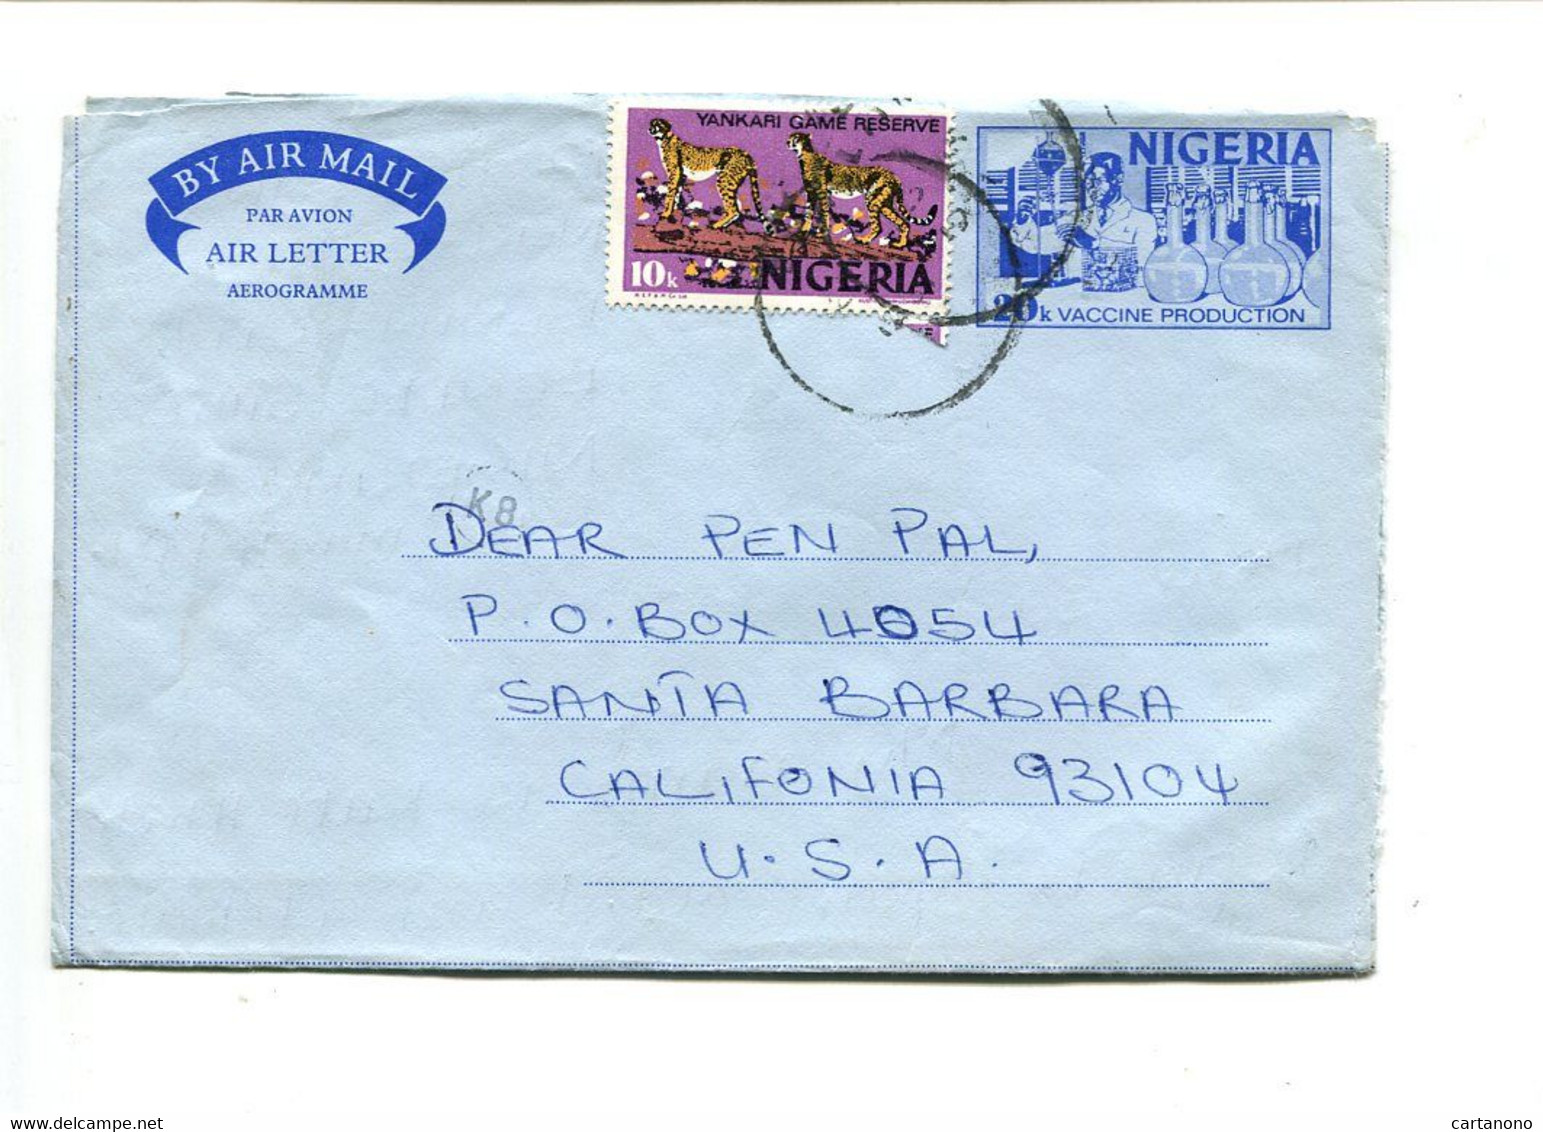 BY AIR MAIL
PAR AVION
AIR LETTER
AEROGRAMME
YANKARI GAME RESERVE
10k NIGERIA
NIGERIA
20k VACCINE PRODUCTION
K8
DEAR PEN PAL,
P.O. BOX 4054
SANTA BARBARA
CALIFONIA 93104
U.S.A.
delcampe.net
cartanono